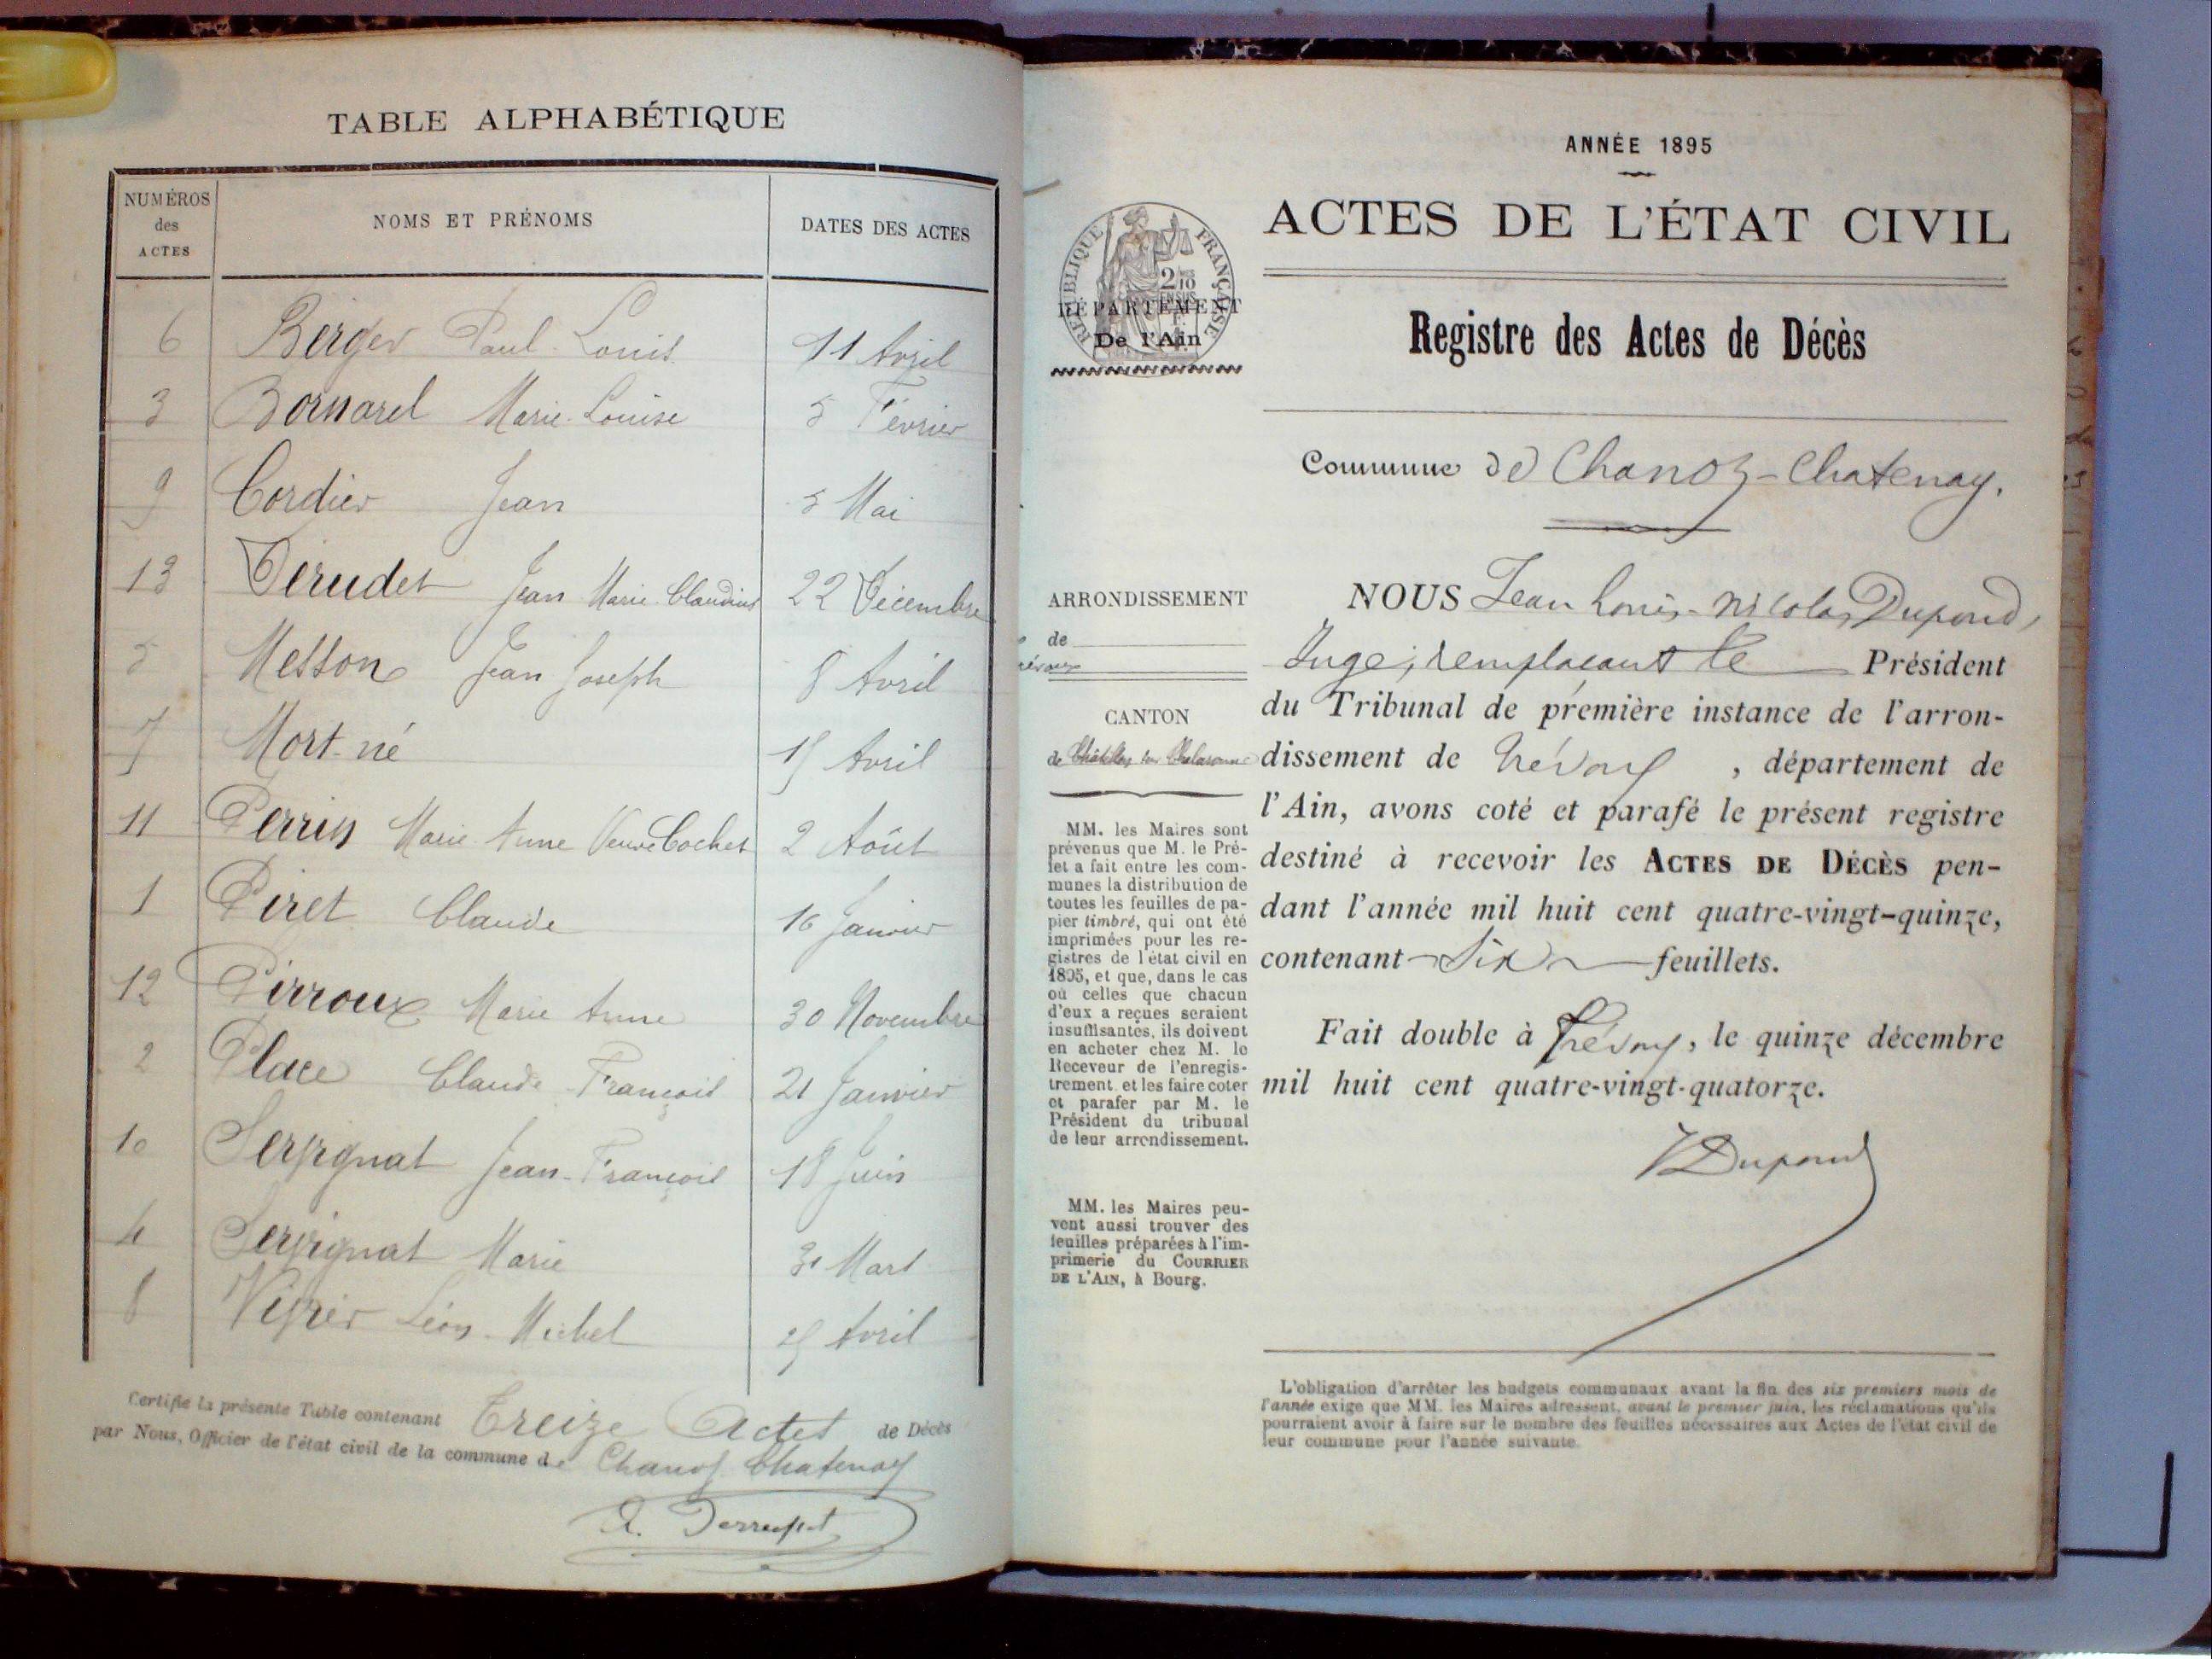 TABLE ALPHABÉTIQUE
NUMÉROS
des
ACTES
NOMS ET PRÉNOMS
DATES DES ACTES
6 Berger Paul Louis 11 Avril
3 Bornarel Marie-Louise 5 Février
9 Cordier Jean 5 Mai
13 Dérudet Jean Marie Claudius 22 Décembre
5 Messon Jean Joseph 8 Avril
7 Mort-né 15 Avril
11 Perrin Marie Anne Veuve Cochet 2 Août
1 Piret Claude 16 Janvier
12 Pirroux Marie Anne 30 Novembre
2 Place Claude François 21 Janvier
10 Serpignat Jean-François 18 Juin
4 Serpignat Marie 31 Mars
8 Veprer Léon Michel Avril
Certifie la présente Table contenant Treize Actes de Décès
par Nous, Officier de l'état civil de la commune de Chanoz Chatenay
ANNÉE 1895
ACTES DE L'ÉTAT CIVIL
RÉPUBLIQUE FRANÇAISE
2/10
EN SUS
DÉPARTEMENT
De l'Ain
Registre des Actes de Décès
Commune de Chanoz-Chatenay.
ARRONDISSEMENT
de
CANTON
de Châtillon sur Chalaronne
MM. les Maires sont
prévenus que M. le Pré-
fet a fait entre les com-
munes la distribution de
toutes les feuilles de pa-
pier timbré, qui ont été
imprimées pour les re-
gistres de l'état civil en
1895, et que, dans le cas
où celles que chacun
d'eux a reçues seraient
insuffisantes, ils doivent
en acheter chez M. le
Receveur de l'enregis-
trement et les faire coter
et parafer par M. le
Président du tribunal
de leur arrondissement.
MM. les Maires peu-
vent aussi trouver des
feuilles préparées à l'im-
primerie du COURRIER
DE L'AIN, à Bourg.
NOUS Jean Louis-Nicolas Dupond,
Juge, remplaçant le Président
du Tribunal de première instance de l'arron-
dissement de Trévoux, département de
l'Ain, avons coté et parafé le présent registre
destiné à recevoir les ACTES DE DÉCÈS pen-
dant l'année mil huit cent quatre-vingt-quinze,
contenant Six feuillets.
Fait double à Trévoux, le quinze décembre
mil huit cent quatre-vingt-quatorze.
Dupond
L'obligation d'arrêter les budgets communaux avant la fin des six premiers mois de
l'année exige que MM. les Maires adressent, avant le premier juin, les réclamations qu'ils
pourraient avoir à faire sur le nombre des feuilles nécessaires aux Actes de l'état civil de
leur commune pour l'année suivante.